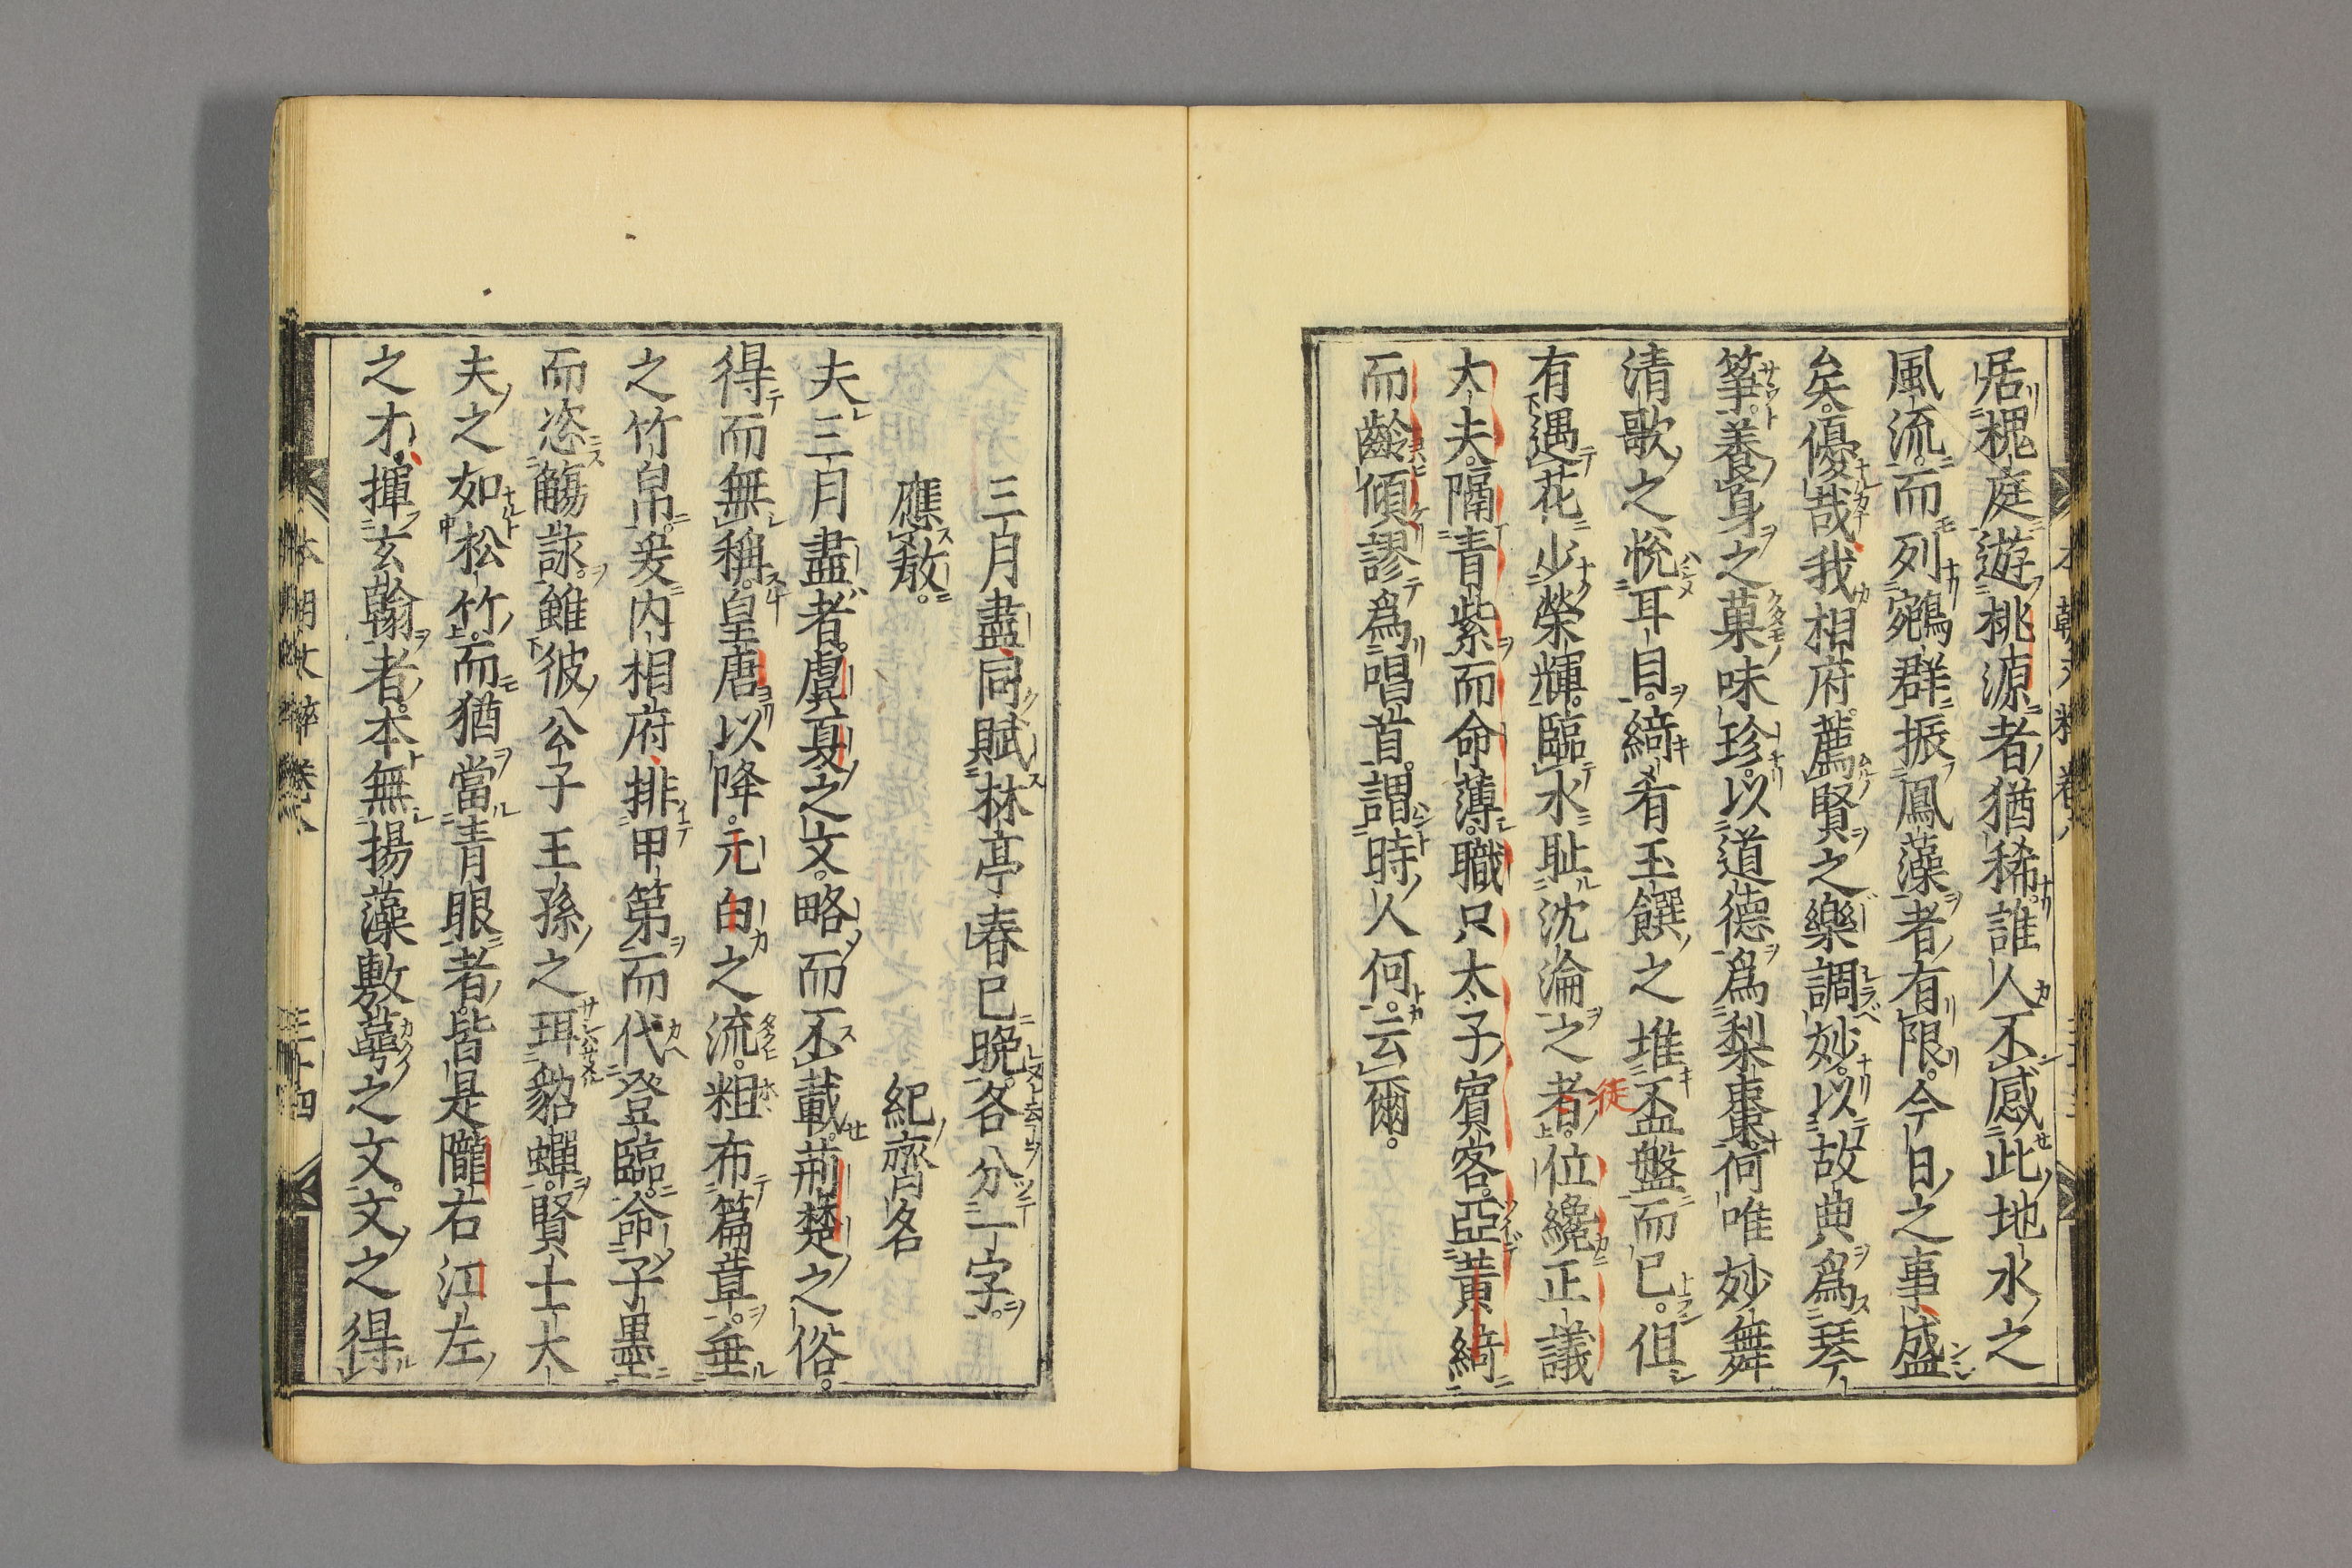 居槐庭遊桃源者猶稀誰人不感此地水之
風流而列鵷群振鳳藻者有限今日之事盛
矣優哉我相府薦賢之樂調妙以故典爲琴
筝養身之菓味珍以道德爲梨棗何唯妙舞
清歌之悅耳目綺肴玉饌之堆盃盤而已但
有遇花少榮輝臨水耻沈淪之者位纔正議
徒
大夫隔青紫而命薄職只太子賓客亞黃綺
而齡傾謬爲唱首謂時人何云爾
三月盡同賦林亭春已晩各分一字
應敎
紀齊名
夫三月盡者虞夏之文略而不載荊楚之俗
得而無稱皇唐以降元白之流粗布篇章垂
之竹帛爰内相府排甲第而代登臨命子墨
而恣觴詠雖彼公子王孫之珥貂蟬賢士大
夫之如松竹而猶當青眼者皆是隴右江左
之才揮玄翰者本無揚藻敷萼之文文之得
本朝文粹卷八
三十四